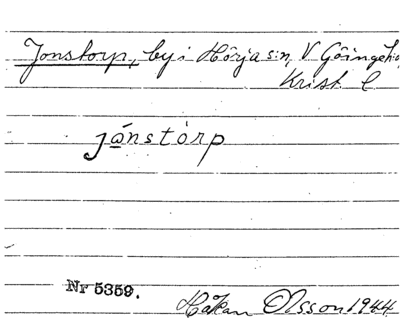 Jonstorp, by i Hörja sn, V Göinge hd
Krist l
jånstòrp
Nr 5359.
Håkan Olsson 1944